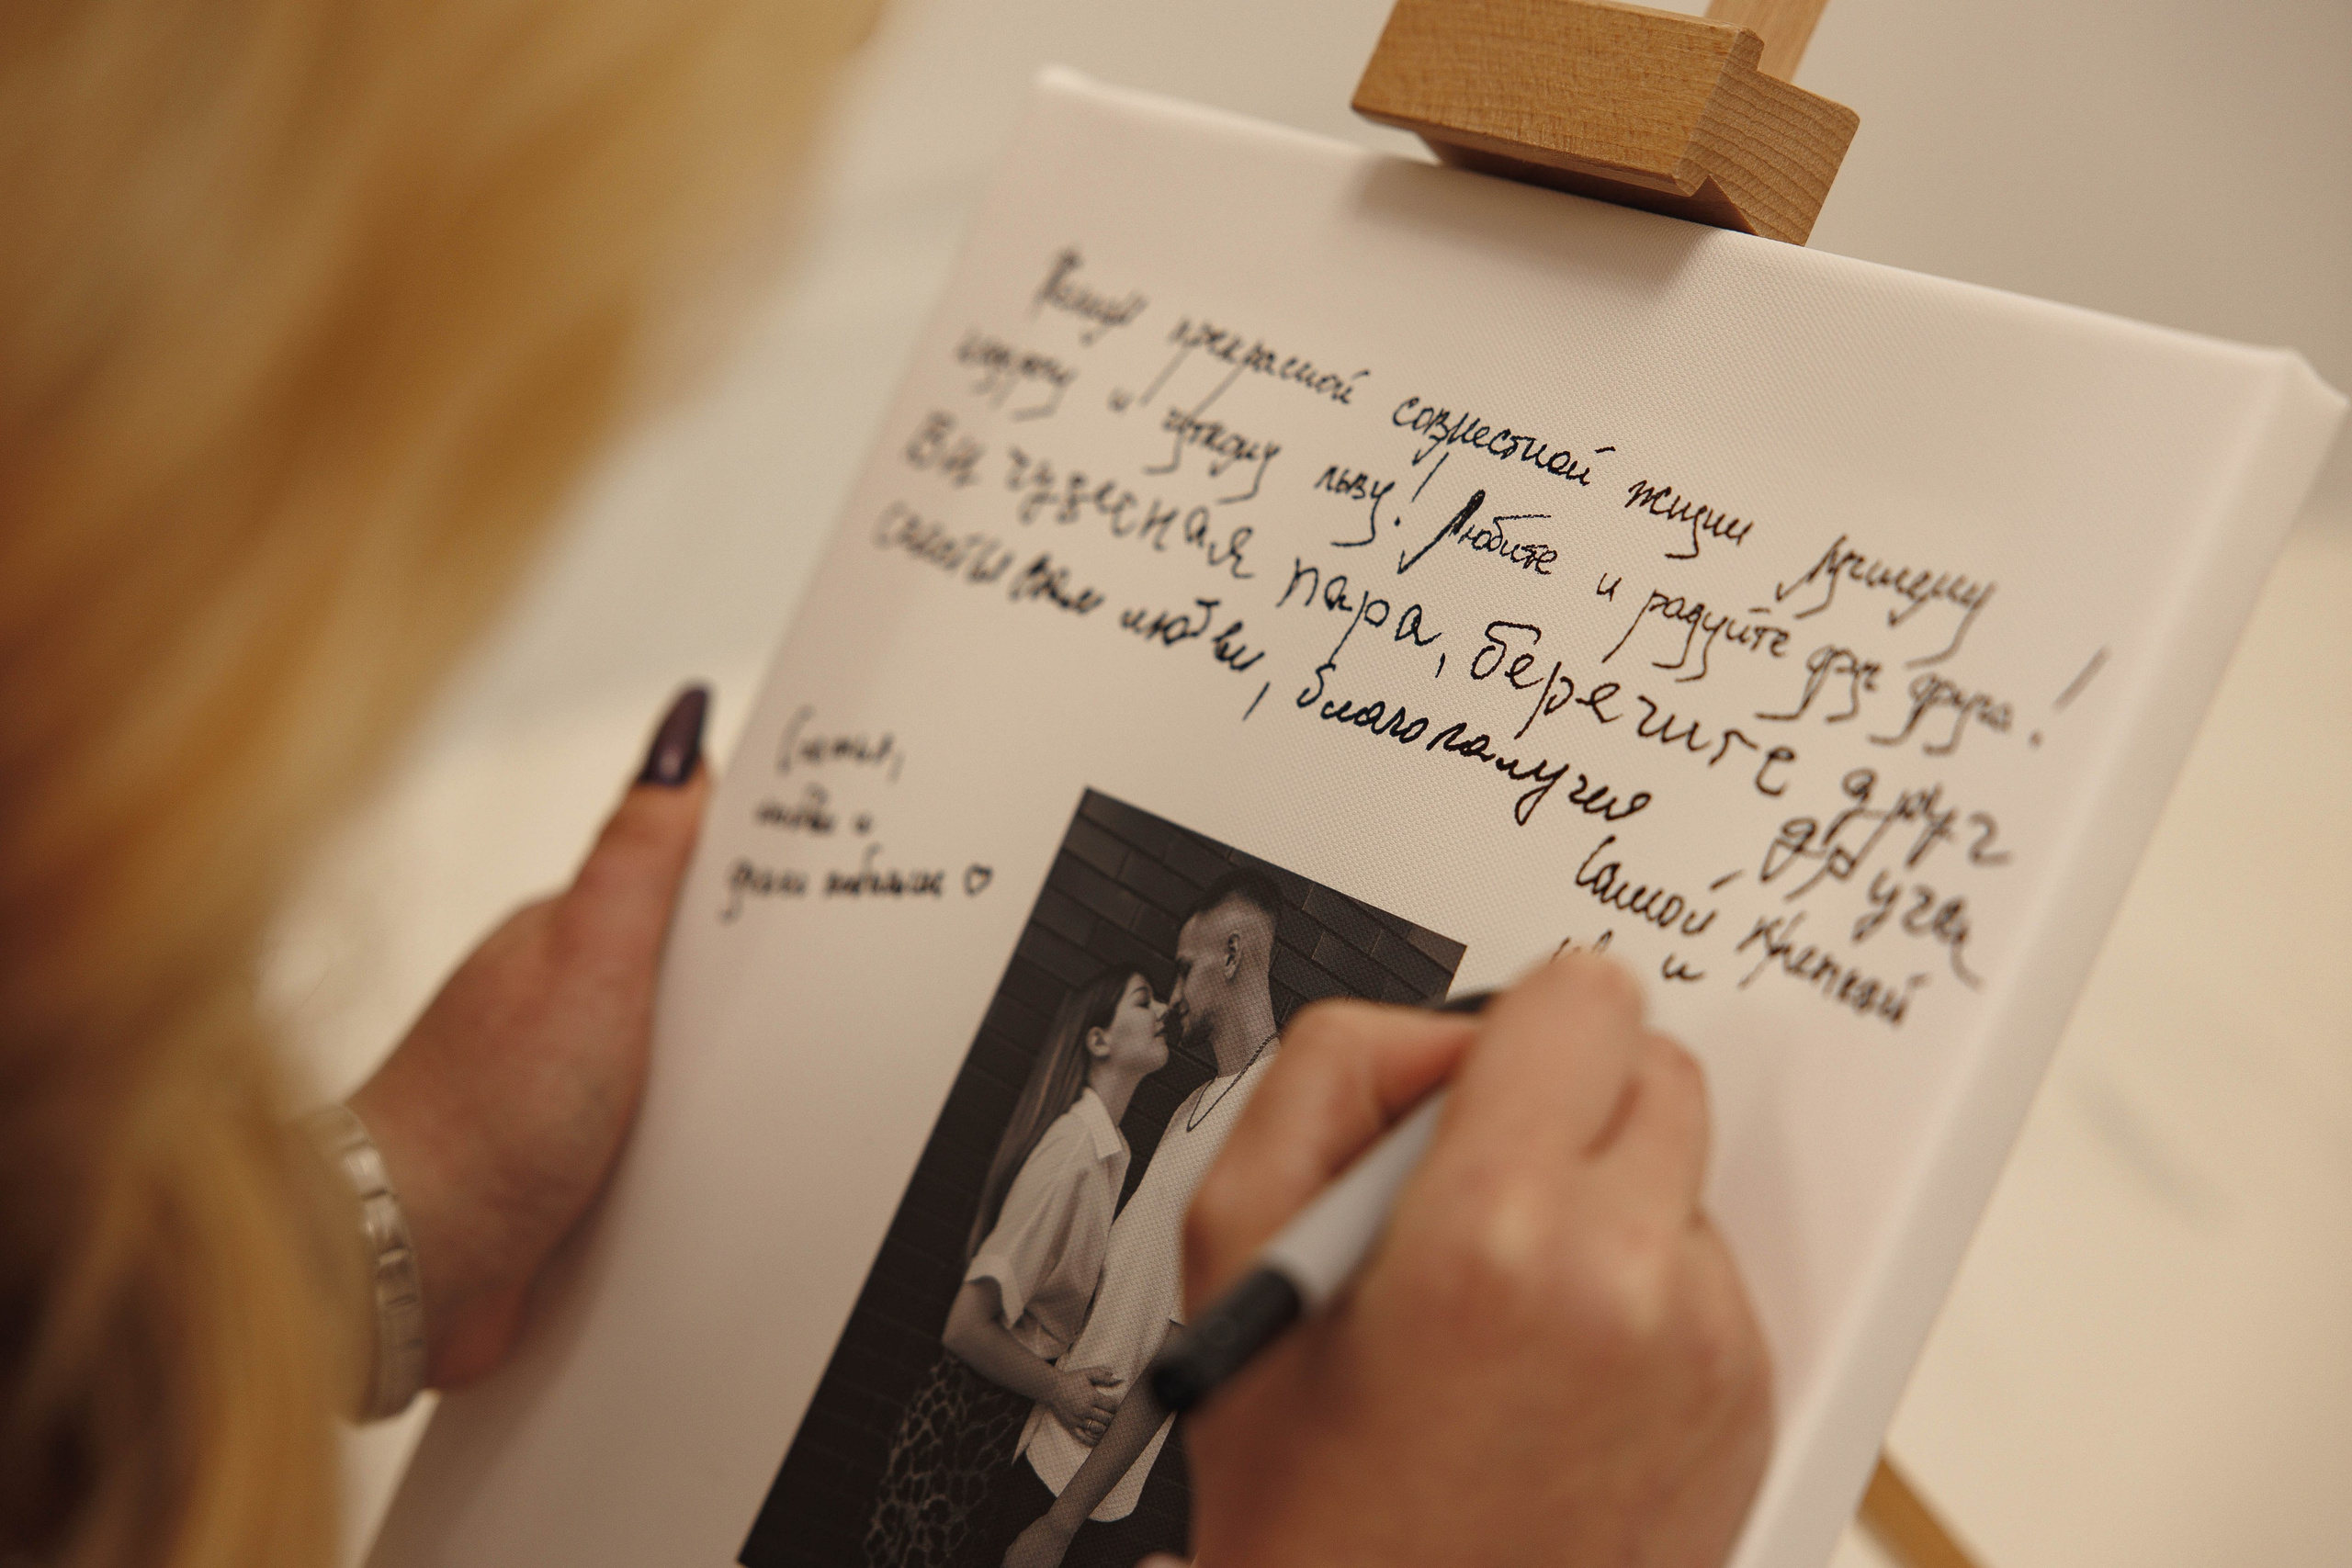 прекрасной совместной жизни лучшему
и чуткому льву! Любите и радуйте друг друга!
Вы чудесная пара, берегите друг
друга
счастья Вам любви, благополучия
Счастья,
любви и
♡
Самой крепкой
и